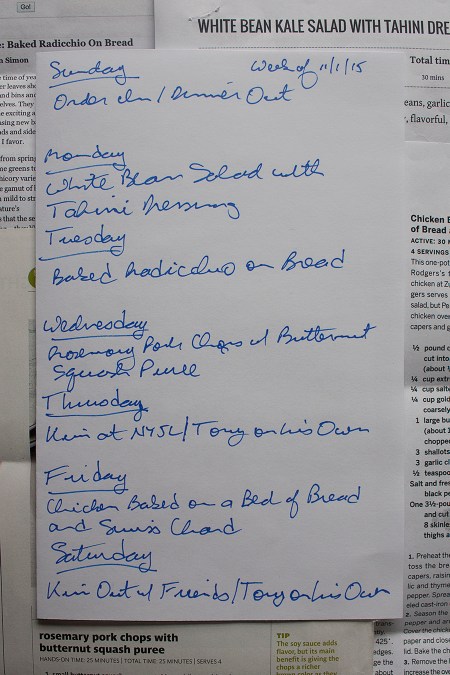 Go!
WHITE BEAN KALE SALAD WITH TAHINI DRE
: Baked Radicchio On Bread
Simon
Total time
30 mins
eans, garlic
, flavorful,
Sunday Week of 11/1/15
Order In / Dinner Out
Monday
White Bean Salad with
Tahini Dressing
Tuesday
Baked Radicchio on Bread
Wednesday
Rosemary Pork Chops w/ Butternut
Squash Puree
Thursday
Kim at NYSL / Tony on his Own
Friday
Chicken Baked on a Bed of Bread
and Swiss Chard
Saturday
Kim Out w/ Friends / Tony on his Own
Chicken B
of Bread
ACTIVE: 30
4 SERVINGS
This one-pot
Rodgers's
chicken at Zu
gers serves
salad, but Pe
chicken over
capers and g
½ pound c
cut into
(about
¼ cup extr
¼ cup salt
¼ cup gold
coarsely
1 large bu
(about
choppe
3 shallots
3 garlic cl
½ teaspoo
Salt and fres
black pe
One 3½-pou
and cut
8 skinle
thighs a
1. Preheat the
toss the bre
capers, raisin
lic and thyme
pepper. Sprea
eled cast-iron
2. Season the
pepper and ar
Cover the chicke
paper and close
lid. Bake the ch
3. Remove the
increase the ove
rosemary pork chops with
butternut squash puree
HANDS-ON TIME: 25 MINUTES | TOTAL TIME: 25 MINUTES | SERVES 4
TIP
The soy sauce adds
flavor, but its main
benefit is giving the
chops a richer